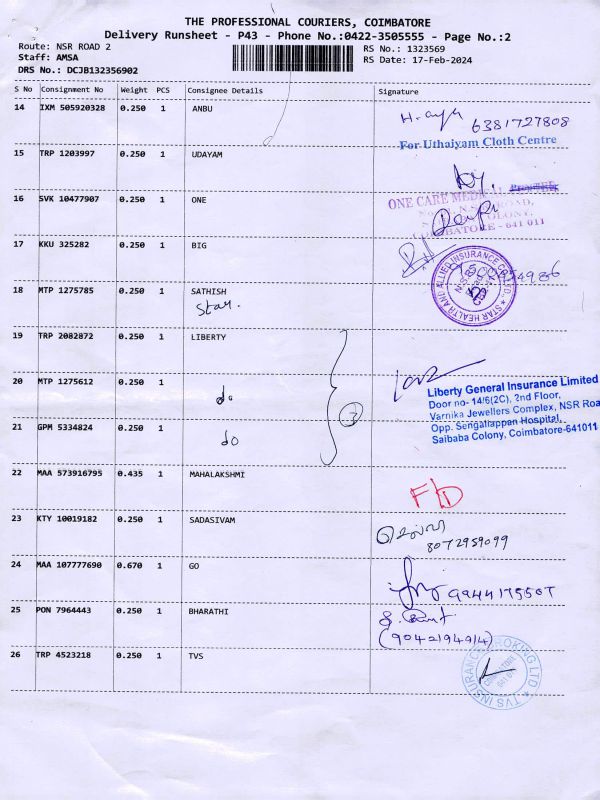 THE PROFESSIONAL COURIERS, COIMBATORE
Delivery Runsheet - P43 - Phone No.:0422-3505555 - Page No.:2
Route: NSR ROAD 2
RS No.: 1323569
Staff: AMSA
RS Date: 17-Feb-2024
DRS No.: DCJB132356902
S No Consignment No Weight PCS Consignee Details Signature
14 IXM 505920328 0.250 1 ANBU
6381727808
For Uthaiyam Cloth Centre
15 TRP 1203997 0.250 1 UDAYAM
16 SVK 10477907 0.250 1 ONE
ONE CARE MEDI
COLONY,
COIMBATORE - 641 011
17 KKU 325282 0.250 1 BIG
STAR HEALTH AND ALLIED INSURANCE CO. LTD.
18 MTP 1275785 0.250 1 SATHISH
Star.
19 TRP 2082872 0.250 1 LIBERTY
20 MTP 1275612 0.250 1 do
3
Liberty General Insurance Limited
Door no- 14/6(2C), 2nd Floor,
Varnika Jewellers Complex, NSR Roa
Opp. Sengaliappan Hospital,
Saibaba Colony, Coimbatore-641011
21 GPM 5334824 0.250 1 do
22 MAA 573916795 0.435 1 MAHALAKSHMI
FD
23 KTY 10019182 0.250 1 SADASIVAM
8072959099
24 MAA 107777690 0.670 1 GO
9944175507
25 PON 7964443 0.250 1 BHARATHI
(9042194914)
26 TRP 4523218 0.250 1 TVS
TVS INSURANCE BROKING LTD